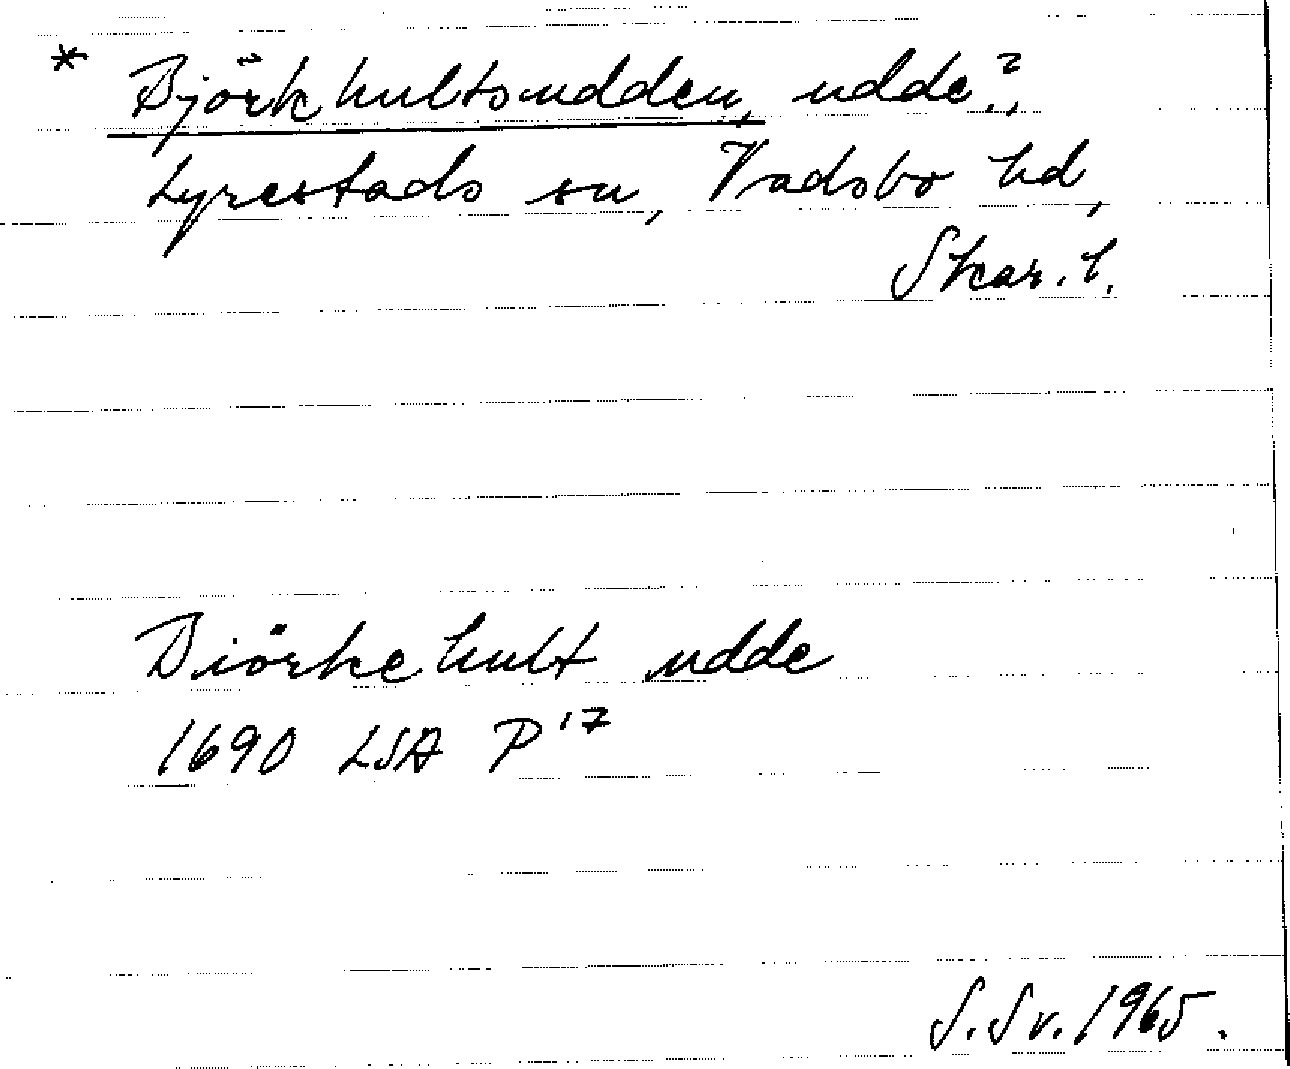 * Björkhultsudden, udde?,
Lyrestads sn, Vadsbo hd,
Skar. l.
Biörkehult udde
1690 LSA P 17
S. Sv. 1965.